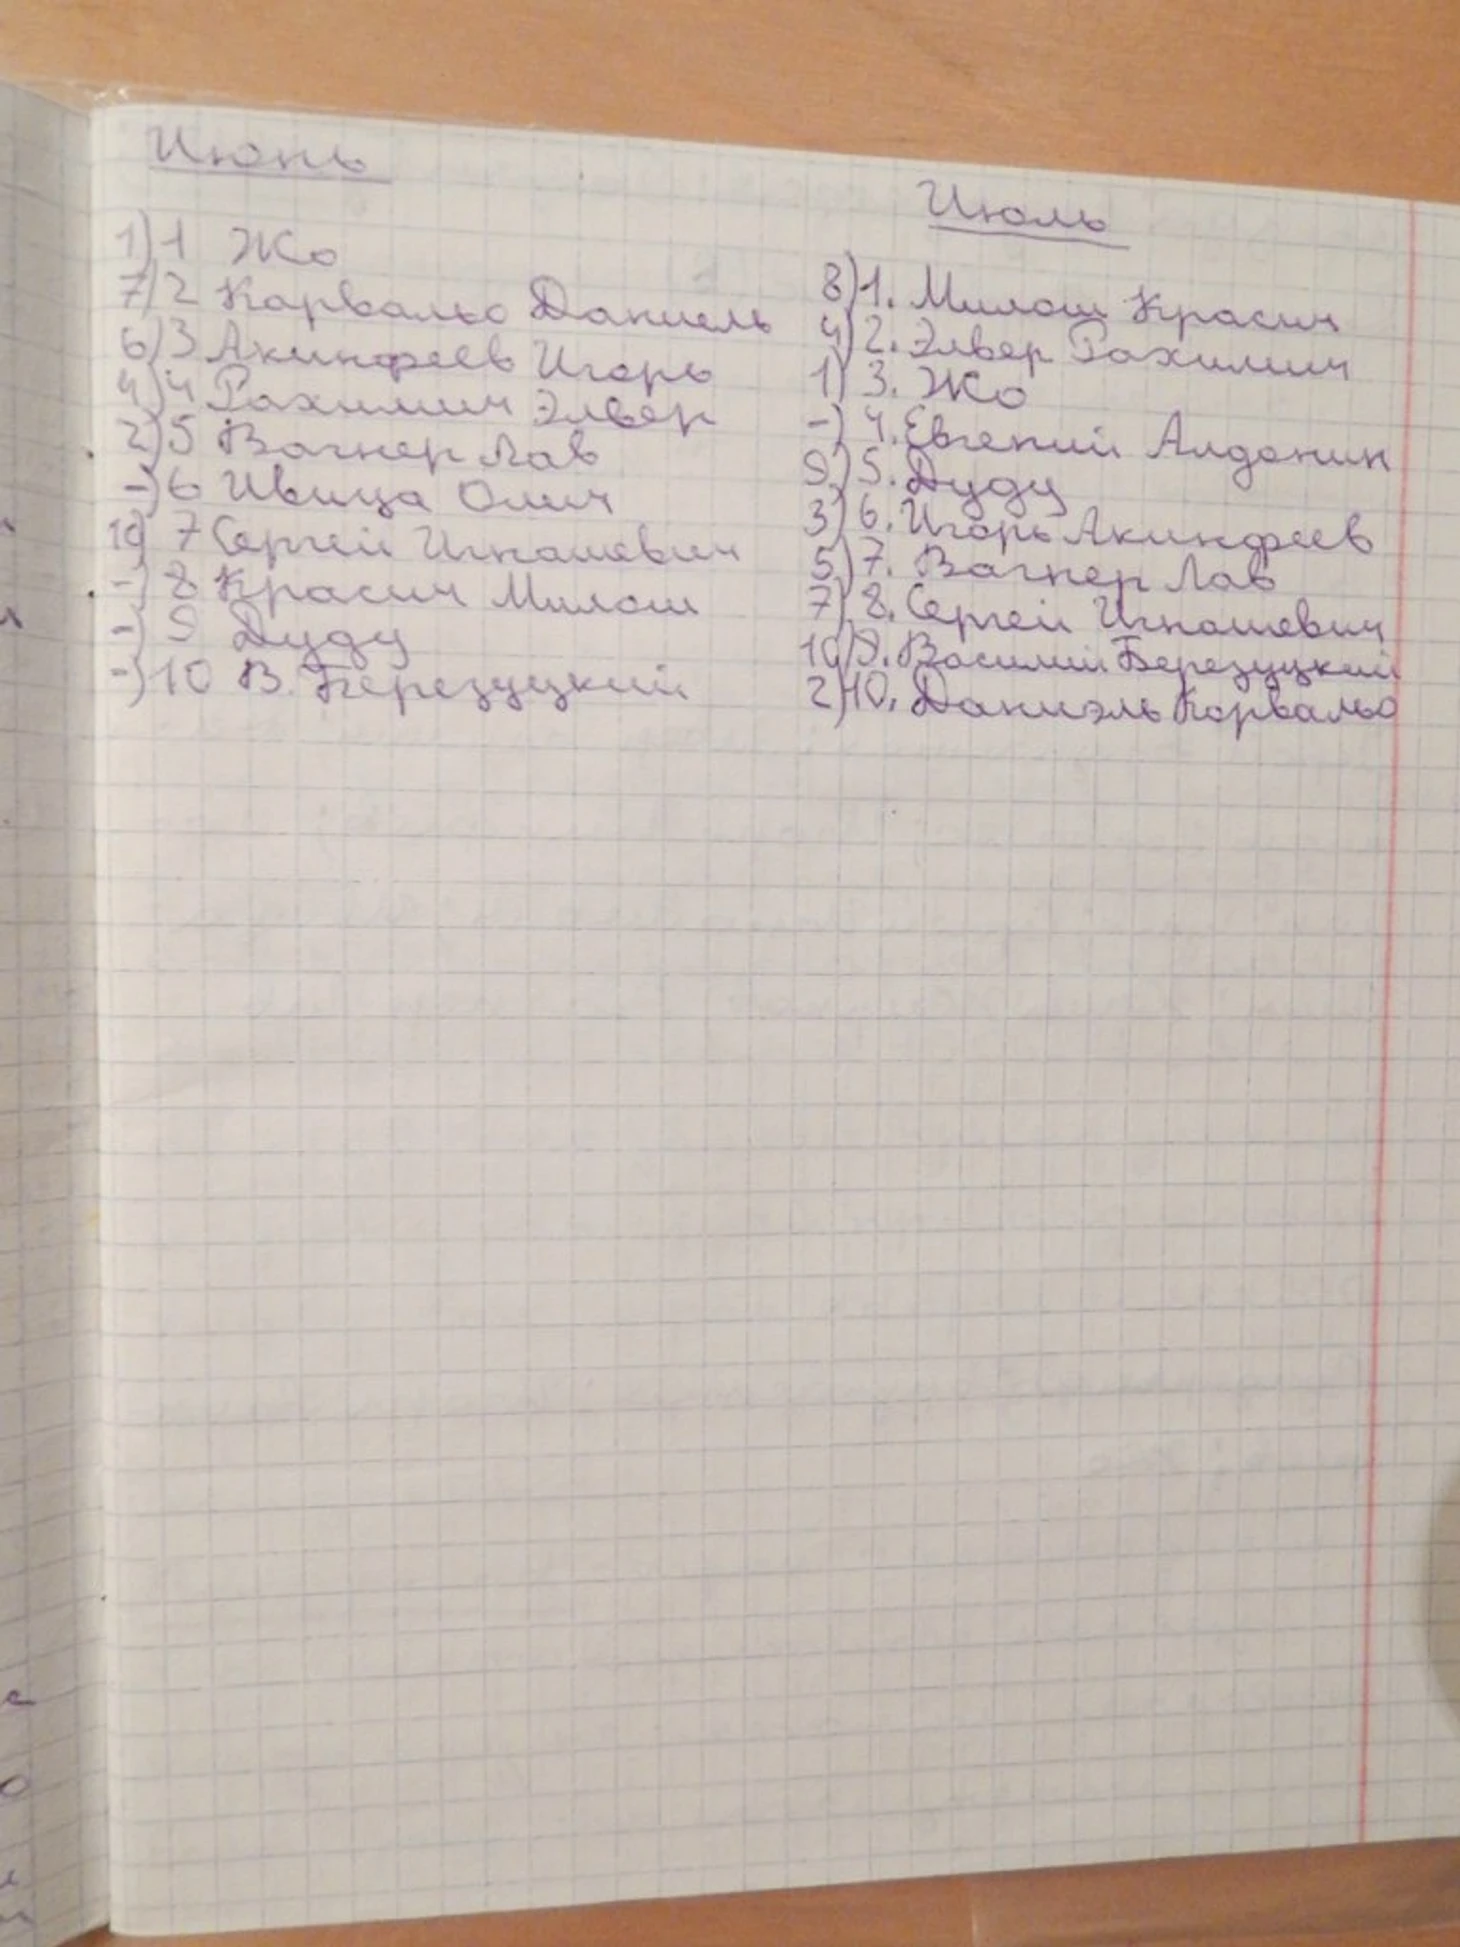 Июнь
1) 1 Жо
7) 2 Карвальо Даниель
6) 3 Акинфеев Игорь
4) 4 Рахимич Элвер
2) 5 Вагнер Лав
-) 6 Ивица Олич
10) 7 Сергей Игнашевич
-) 8 Красич Милош
-) 9 Дуду
-) 10 В. Березуцкий
Июль
8) 1. Милош Красич
4) 2. Элвер Рахимич
1) 3. Жо
-) 4. Евгений Алдонин
9) 5. Дуду
3) 6. Игорь Акинфеев
5) 7. Вагнер Лав
7) 8. Сергей Игнашевич
10) 9. Василий Березуцкий
2) 10. Даниэль Карвальо